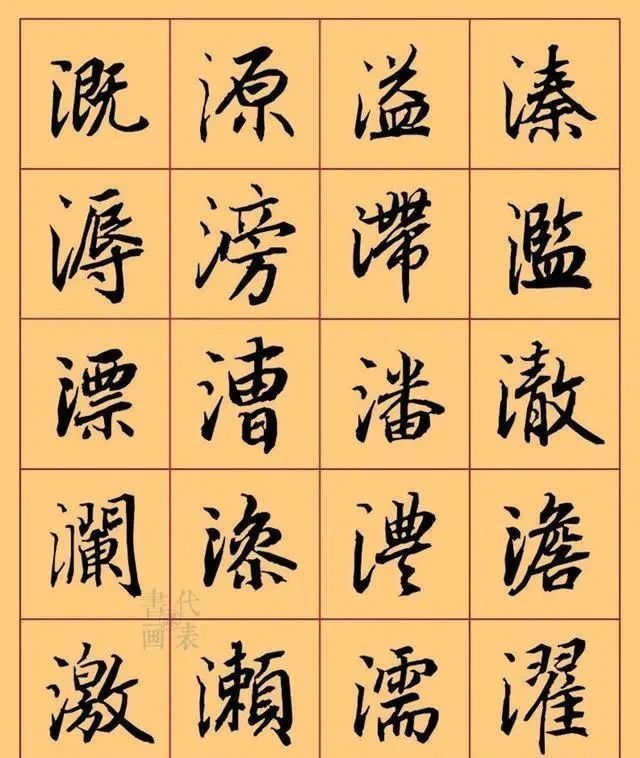 溉源溢溱
溽滂滞濫
漂漕潘澈
瀾漆澧澹
激瀨濡濯
書画
代表